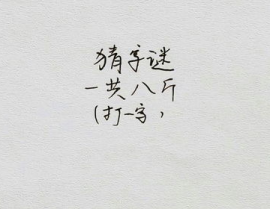 猜字谜
一共八斤
(打一字,